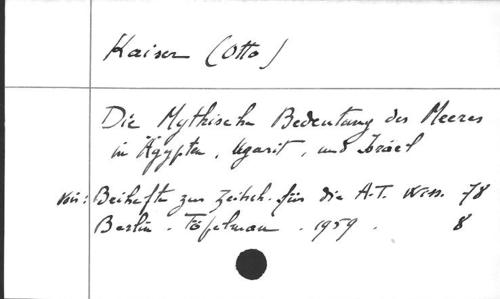 Kaiser (Otto)
Die Mythische Bedeutung des Meeres
in Ägypten, Ugarit, und Israel
voir: Beihefte zur Zeitsch. für die A.T. Wiss. 78
Berlin. Töpelman. 1959. 8